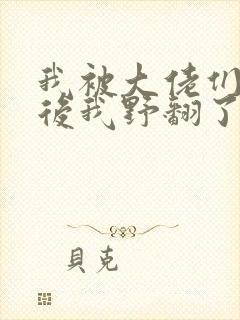 我被大佬们
後我野翻了
貝克